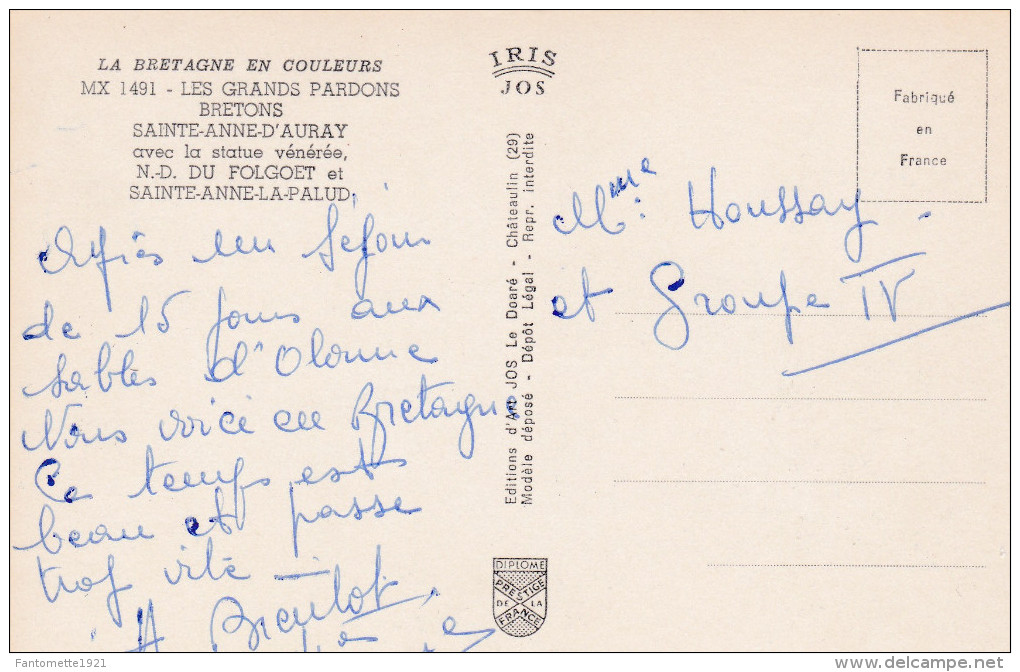 LA BRETAGNE EN COULEURS
MX 1491 - LES GRANDS PARDONS
BRETONS
SAINTE-ANNE-D'AURAY
avec la statue vénérée,
N.-D. DU FOLGOET et
SAINTE-ANNE-LA-PALUD.
Après un séjour
de 15 jours aux
sables d'Olonne
Nous voici en Bretagne
Ce temps est
beau et passe
trop vite —
IRIS
JOS
Editions d'Art JOS Le Doaré - Châteaulin (29)
Modèle déposé - Dépôt Légal - Repr. interdite
DIPLOME
PRESTIGE
DE LA
FRANCE
Fabriqué
en
France
Mme Houssay
et Groupe IV
Fantomette1921
delcampe.net